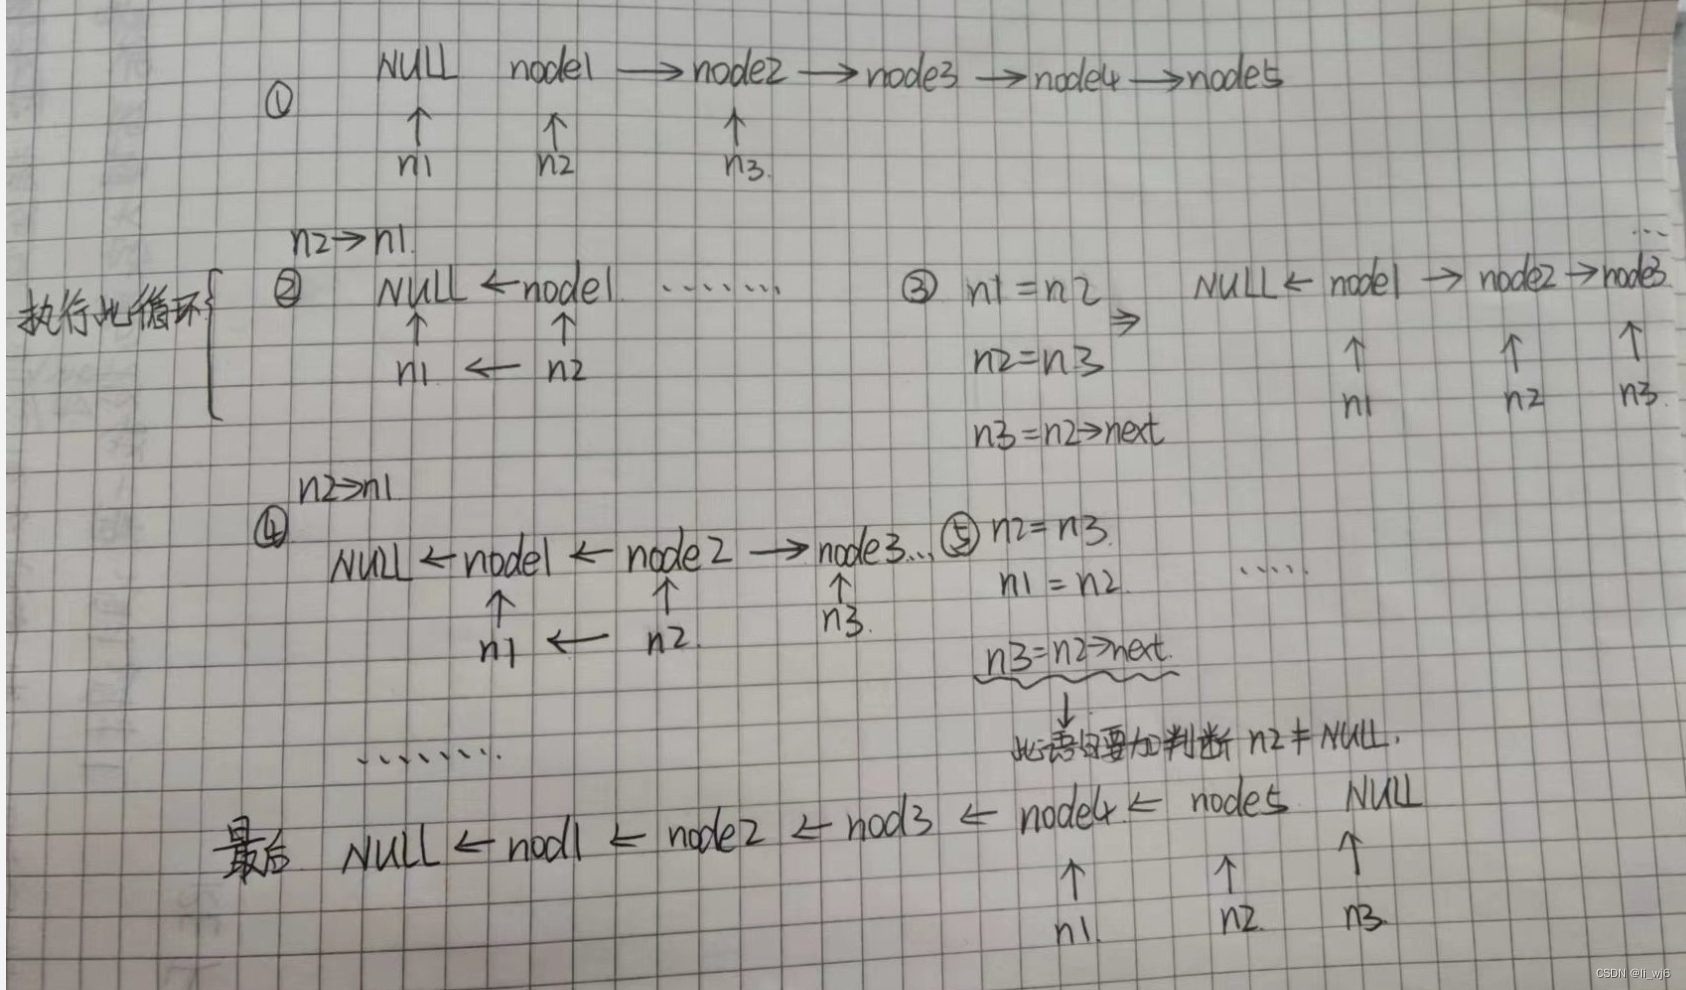 ① NULL node1 → node2 → node3 → node4 → node5
↑ ↑ ↑
n1 n2 n3.
n2→n1.
执行此循环{ ② NULL ← node1 ........
↑ ↑
n1 ← n2
③ n1 = n2 ⇒
n2 = n3
n3 = n2→next
...
NULL ← node1 → node2 → node3
↑ ↑ ↑
n1 n2 n3.
n2→n1
④ NULL ← node1 ← node2 → node3...
↑ ↑ ↑
n1 ← n2. n3.
⑤ n2 = n3.
n1 = n2. .....
n3=n2→next.
↓
此语句要加判断 n2≠NULL.
........
最后 NULL ← nod1 ← node2 ← nod3 ← node4 ← node5 NULL
↑ ↑ ↑
n1 n2 n3
CSDN @li_wj6